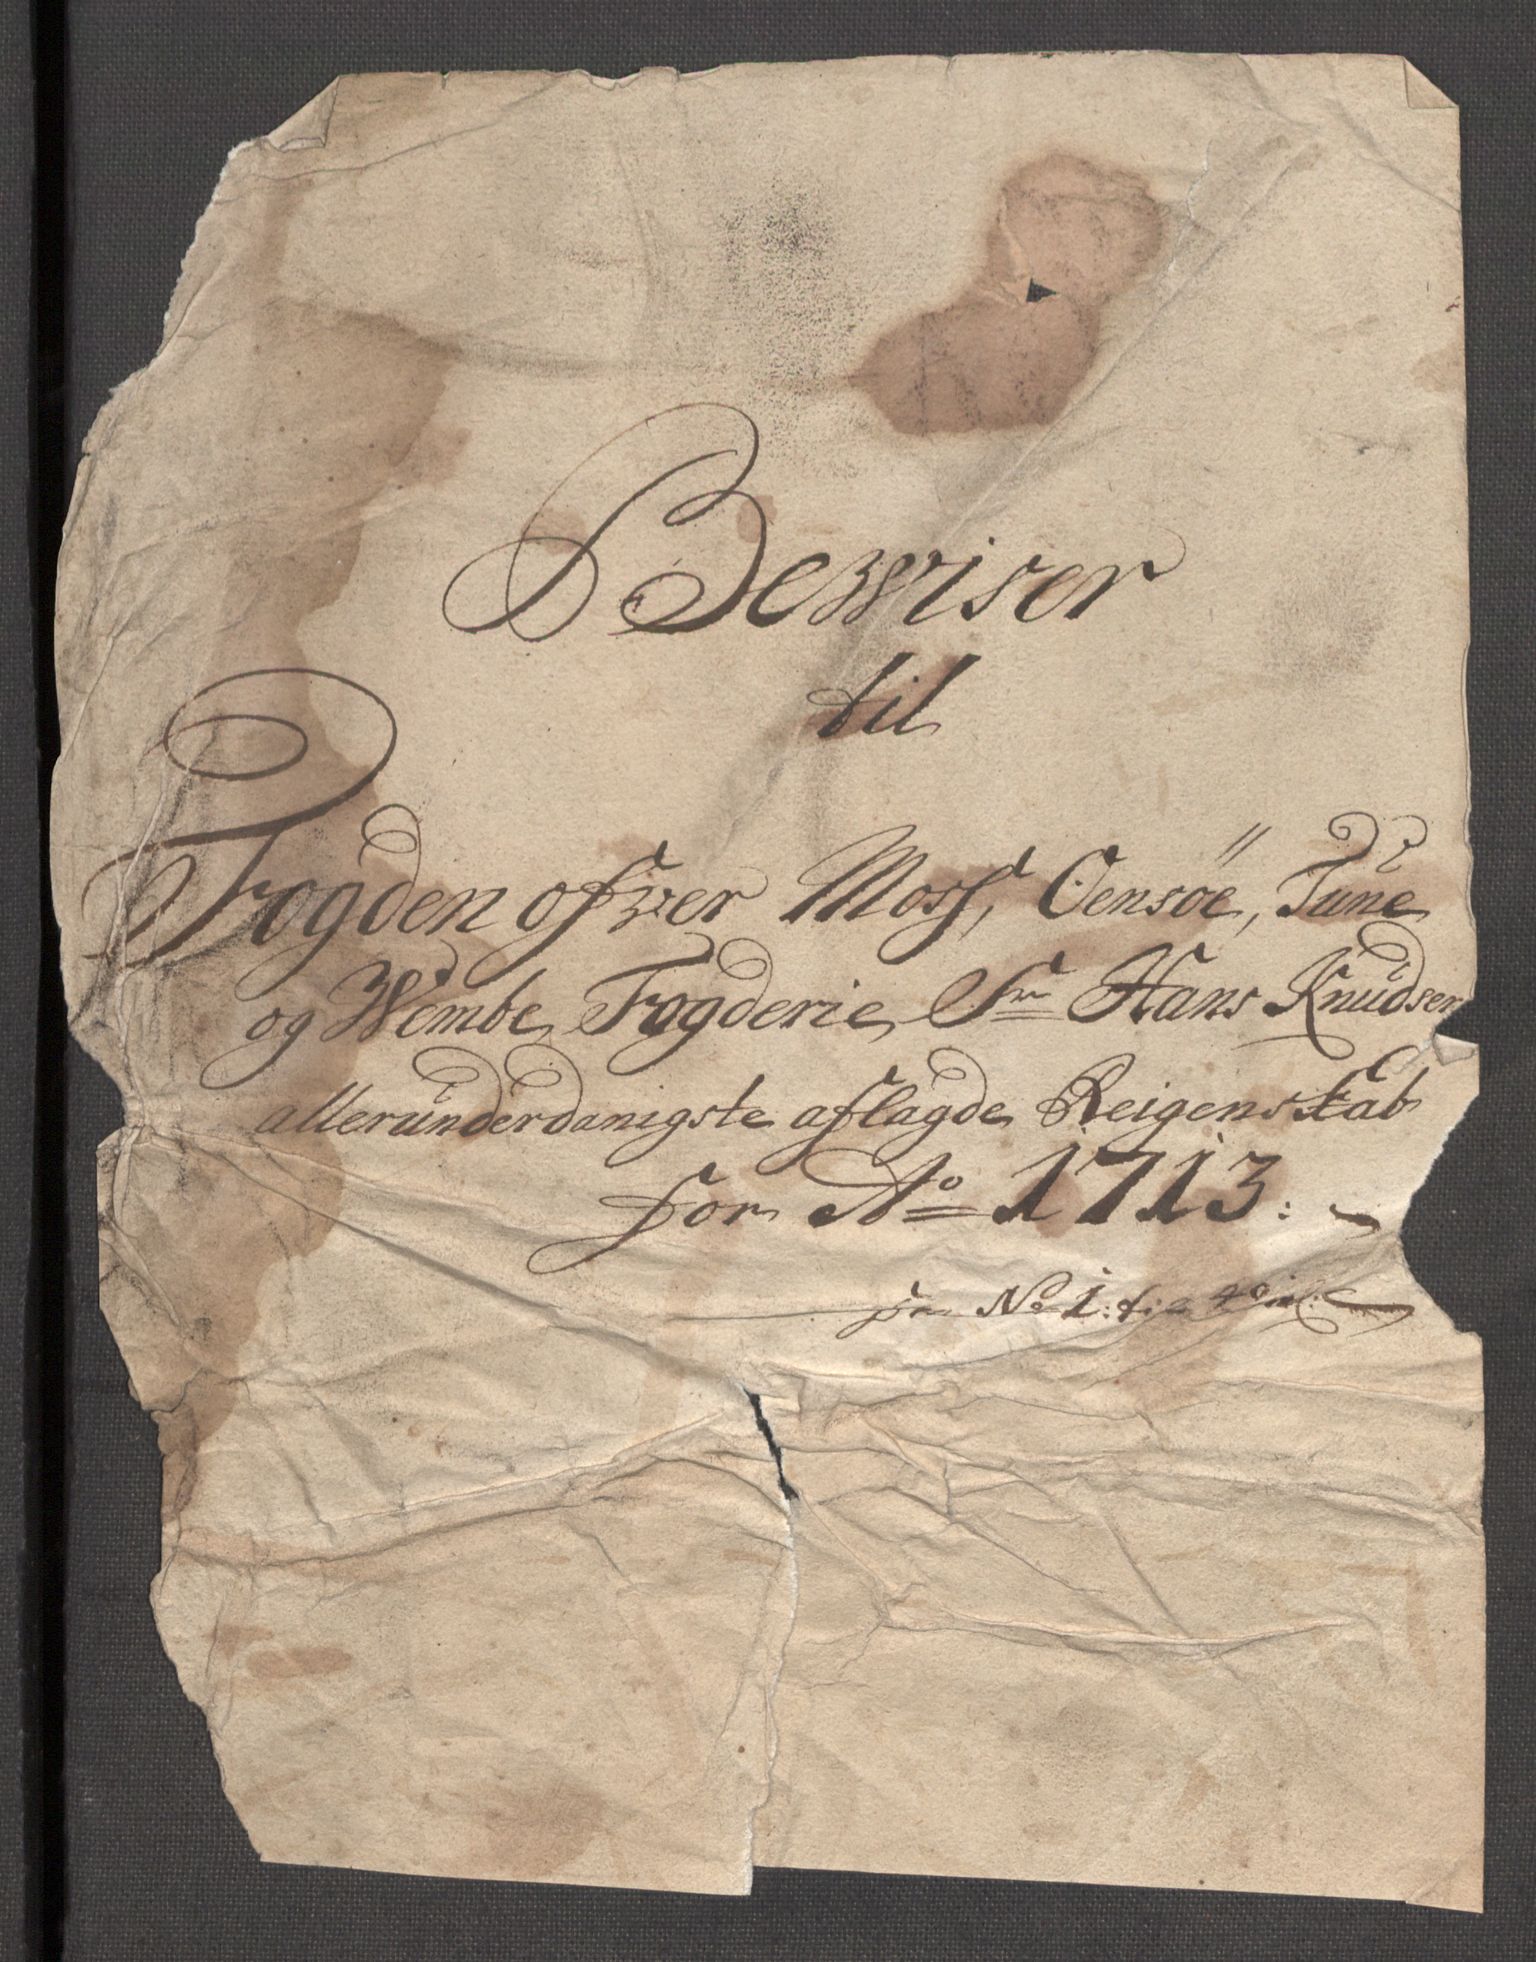 Bewiser
til
Fogden ofwer Moss, Oensöe, Tune
og Wembe Fogderie Sr Hans Knudsen
allerunderdanigste aflagde Reigenskab
for Ao 1713:
fra No 1: til